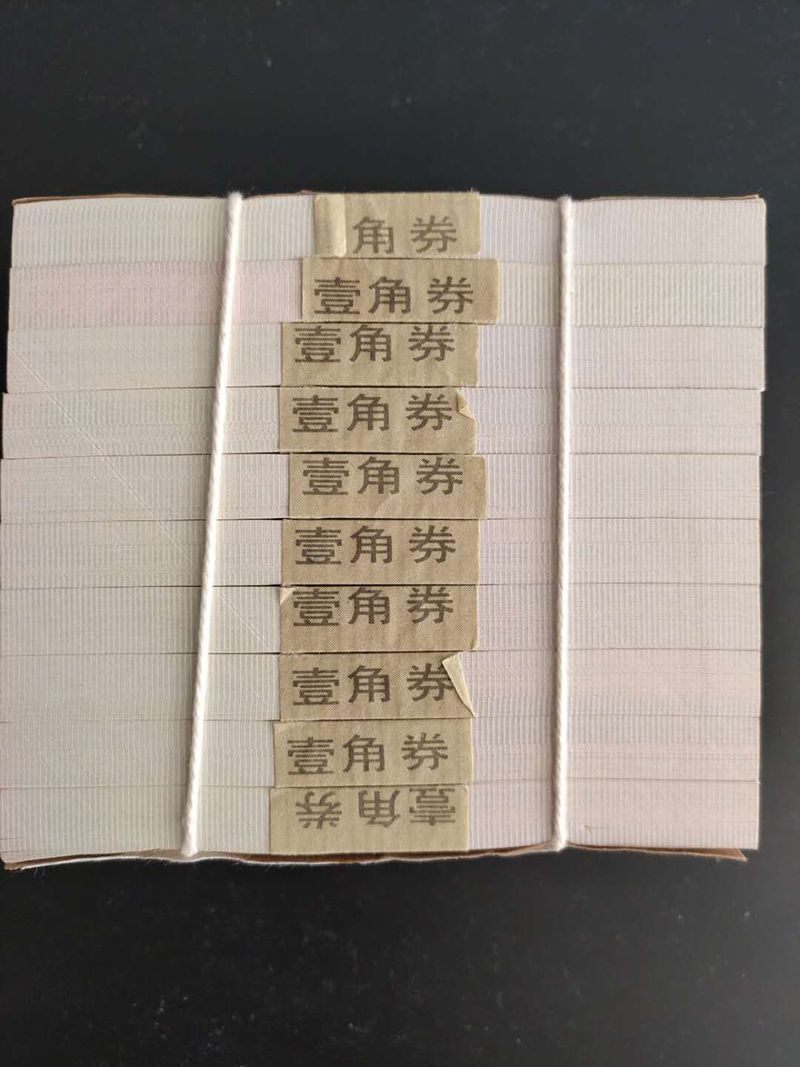 角券
壹角券
壹角券
壹角券
壹角券
壹角券
壹角券
壹角券
壹角券
壹角券